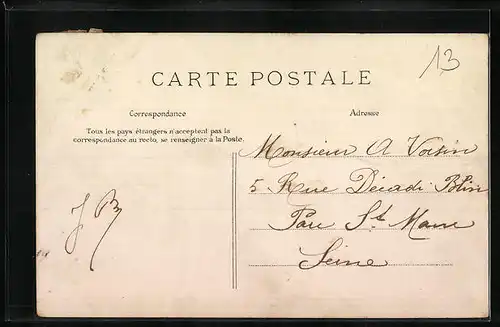 13
CARTE POSTALE
Correspondance
Adresse
Tous les pays étrangers n'acceptent pas la
correspondance au recto, se renseigner à la Poste.
Monsieur A Voisin
5 Rue Décadi Blin
Parc St Maur
Seine
J B